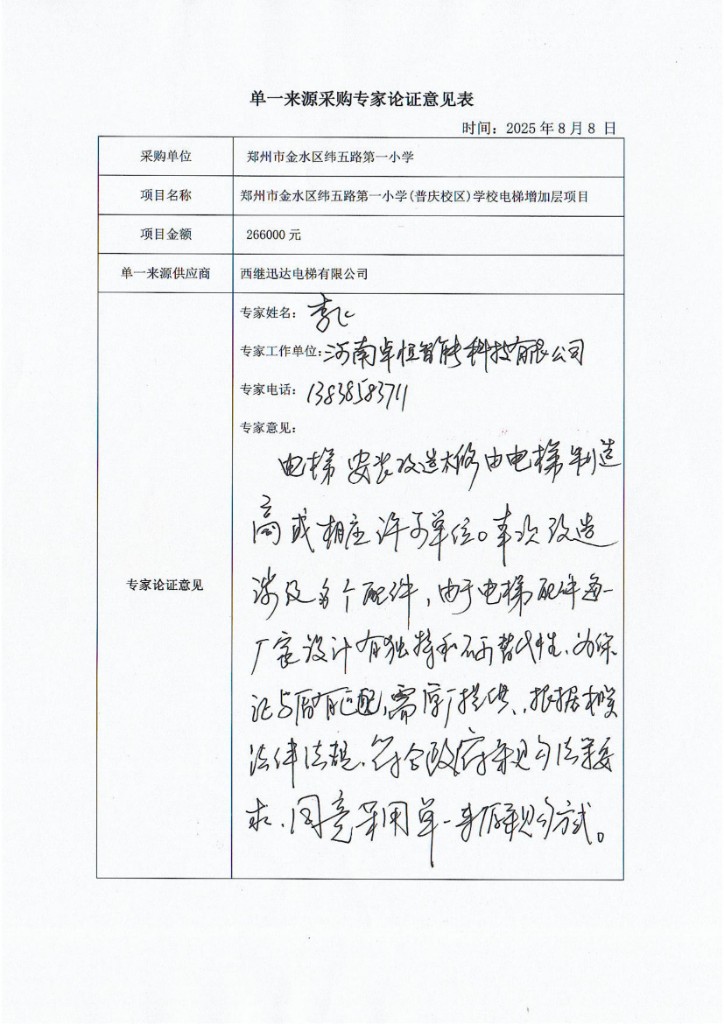 单一来源采购专家论证意见表
时间：2025 年 8 月 8 日
采购单位 郑州市金水区纬五路第一小学
项目名称 郑州市金水区纬五路第一小学(普庆校区)学校电梯增加层项目
项目金额 266000 元
单一来源供应商 西继迅达电梯有限公司
专家姓名：李飞
专家工作单位：河南卓恒智能科技有限公司
专家电话：13838583711
专家意见：
专家论证意见
电梯安装改造大修由电梯制造
商或相应许可单位。本次改造
涉及多个配件，由于电梯配件每一
厂家设计有独特和不可替代性、为保
证与原有匹配，需原厂提供、根据相关
法律法规、符合政府采购法等要
求、同意采用单一来源采购方式。